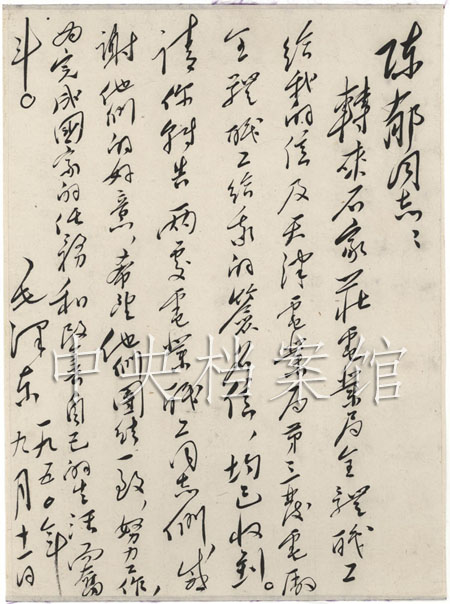 陈郁同志：
轉来石家莊電業局全體職工
给我的信及天津電業局第三发電廠
全體職工给我的簽名信，均已收到。
请你转告两處電業职工同志们，感
谢他们的好意，希望他们團结一致，努力工作，
为完成國家的任務和改善自己的生活而奮
斗。
毛泽东
一九五〇年
九月十一日
中央档案馆